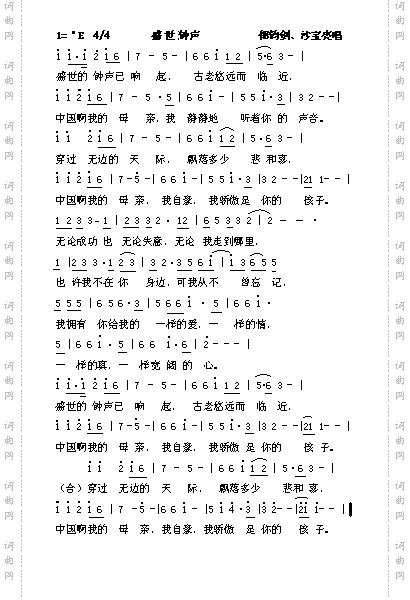 1=♭E 4/4 盛世钟声 郁钧剑、沙宝亮唱
i i·i 2 i 6 | 7 - 5 - | 6 6 i i 2 | 5·6 3 - |
盛世的 钟声已 响 起， 古老悠远而 临 近，
i i 2 i 6 | 7 - 5·5 | 5 5 i·3 | 3 2 - - |
中国啊我的 母 亲，我 静静地 听着你 的 声音。
i i 2 i 6 | 7 - 5 - | 6 6 i i 2 | 5·6 3 - |
穿过 无边的 天 际， 飘落多少 悲 和寥，
i i 2 i 6 | 7 - 5 - | 6 6 i - | 5 5 i·3 | 3 2 - - | 2 i i - - |
中国啊我的 母 亲，我自豪，我骄傲是 你的 孩子。
1 2 3 3 - 1 | 2 3 3 2 · 1 2 | 6 5 3 3 2 | 2 - - -
无论成功 也 无论失意，无论 我走到哪里，
1 | 2 3 3 · 1 2 3 | 3 2 · 3 5 6 i | i 3 6 5 5
也 许我不在 你 身边，可我从不 曾忘 记，
5 5 5 | 6 5 6 · 3 | 5 6 6 i · 5 | 6 6 i ·
我拥有 你给我的 一样的爱，一 样的情，
5 | 6 6 i · 5 | 6 6 i · 6 | 2 - - - |
一 样的真，一 样宽 阔 的 心。
i i·i 2 i 6 | 7 - 5 - | 6 6 i i 2 | 5·6 3 - |
盛世的 钟声已 响 起， 古老悠远而 临 近，
i i 2 i 6 | 7 - 5 - | 6 6 i - | 5 5 i·3 | 3 2 - - | 2 i i - - |
中国啊我的 母 亲，我自豪，我骄傲 是 你的 孩 子。
i i 2 i 6 | 7 - 5 - | 6 6 i i 2 | 5·6 3 - |
（合）穿过 无边的 天 际， 飘落多少 悲和 寥，
i i 2 i 6 | 7 - 5 - | 6 6 i - | 5 i 4·3 | 3 2 - - | 2 i i - - |
中国啊我的 母 亲，我自豪，我骄傲 是 你的 孩 子。
词曲网